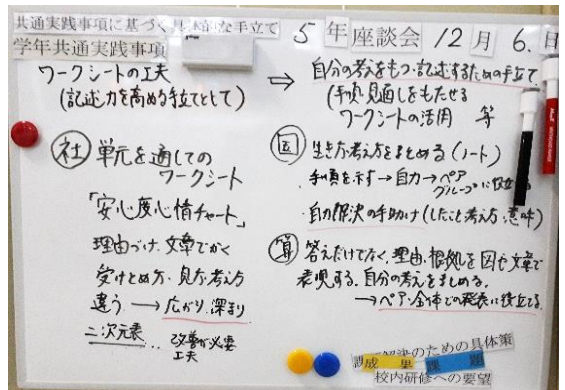 共通実践事項に基づく具体的な手立て
5年座談会 12月6日
学年共通実践事項
ワークシートの工夫
(記述力を高める手立てとして)
⇒ 自分の考えをもつ・記述するための手立て
(手順・見通しをもたせる
ワークシートの活用 等
社 単元を通しての
ワークシート
「安心度心情チャート」
理由づけ、文章でかく
受けとめ方・見方・考え方
違う → 広がり、深まり
二次元表… 改善が必要
工夫
国 生き方考え方をまとめる(ノート)
・手順を示す→自力→ペア
グループに
・自力解決の手助け(したこと考え方、意味)
算 答えだけでなく、理由、根拠を図や文章で
表現する。自分の考えをまとめる。
→ペア・全体での発表に役立てる
解決のための具体策
成果 課題
校内研修への要望